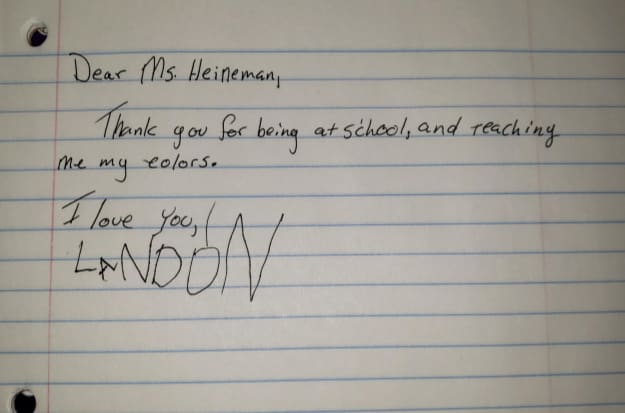 Dear Ms. Heineman,
Thank you for being at school, and teaching
me my colors.
I love you,
LANDON